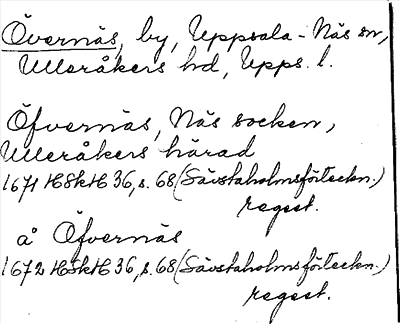 Övernäs, by, Uppsala-Näs sn,
Ulleråkers hd, Upps. l.
Öfvernäs, Näs socken,
Ulleråkers härad
1671 HSkH 36, s. 68 (Sävstaholmsförteckn.)
regest.
å Öfvernäs
1672 HSkH 36, s. 68 (Sävstaholmsförteckn.)
regest.